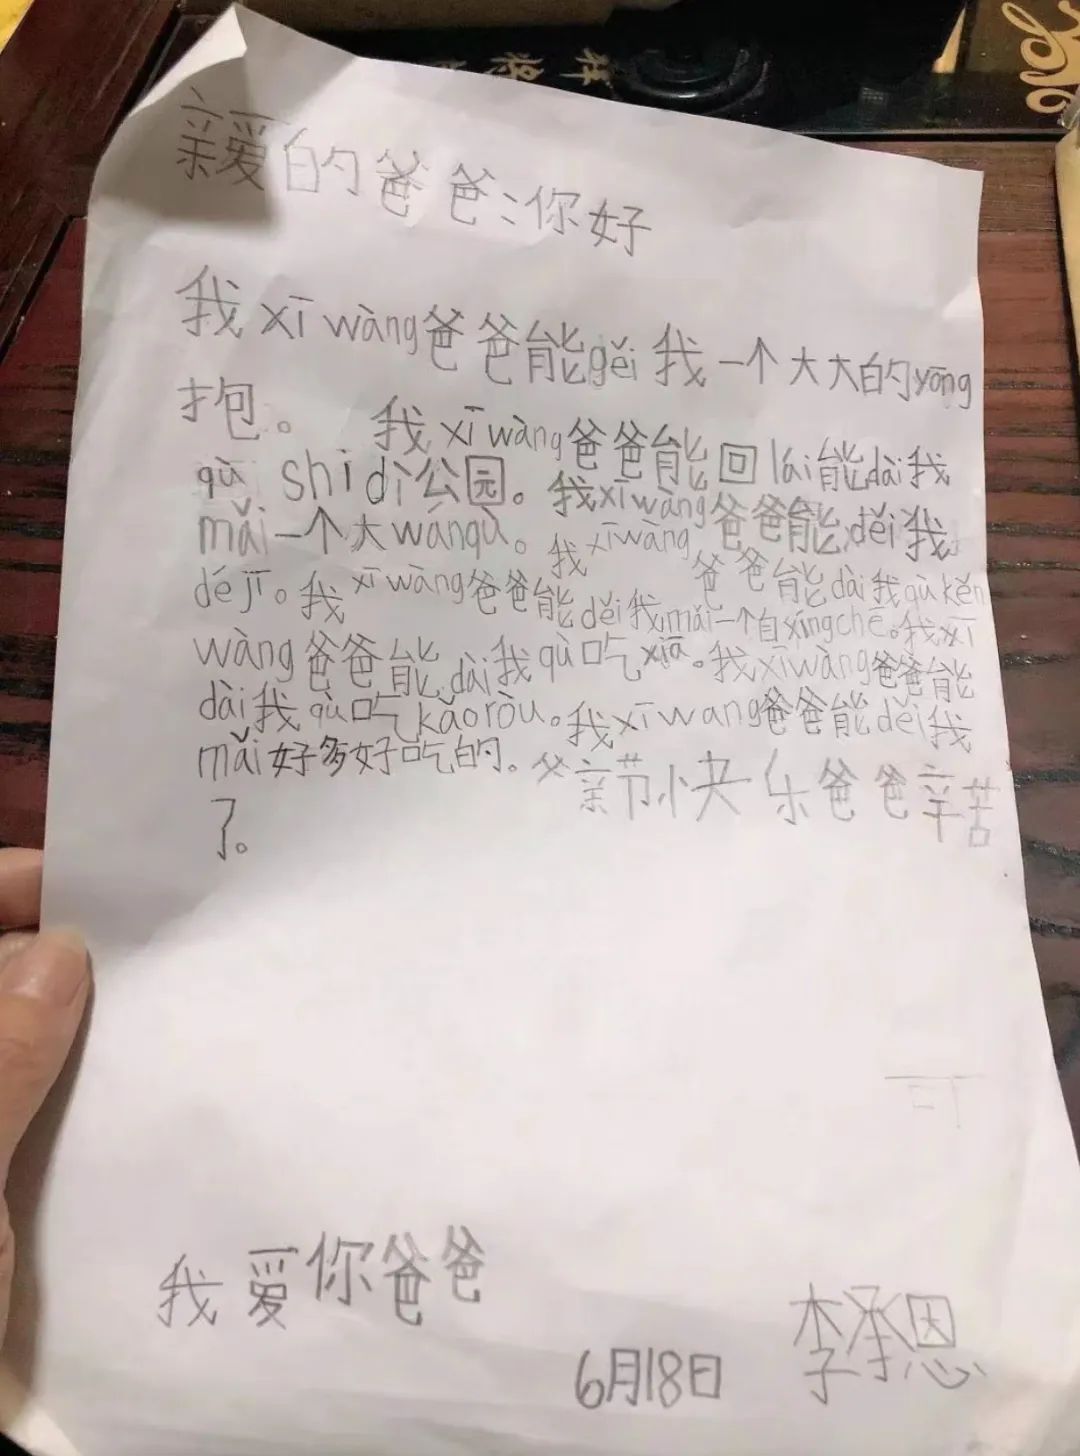 亲爱的爸爸：你好
我xī wàng爸爸能gěi我一个大大的yōng
抱。 我xī wàng爸爸能回lái能dài我
qù shī dì公园。我xī wàng爸爸能děi我
mǎi一个大wánqù。我xī wàng爸爸能dài我qù kěn
dé jī。我xī wàng爸爸能děi我mǎi一个自xíngchē。我xī
wàng爸爸能dài我qù吃xiā。我xī wàng爸爸能
dài我qù吃kǎoròu。我xī wang爸爸能děi我
mǎi好多好吃的。父亲节快乐爸爸辛苦
了。
可
我爱你爸爸
6月18日
李承恩